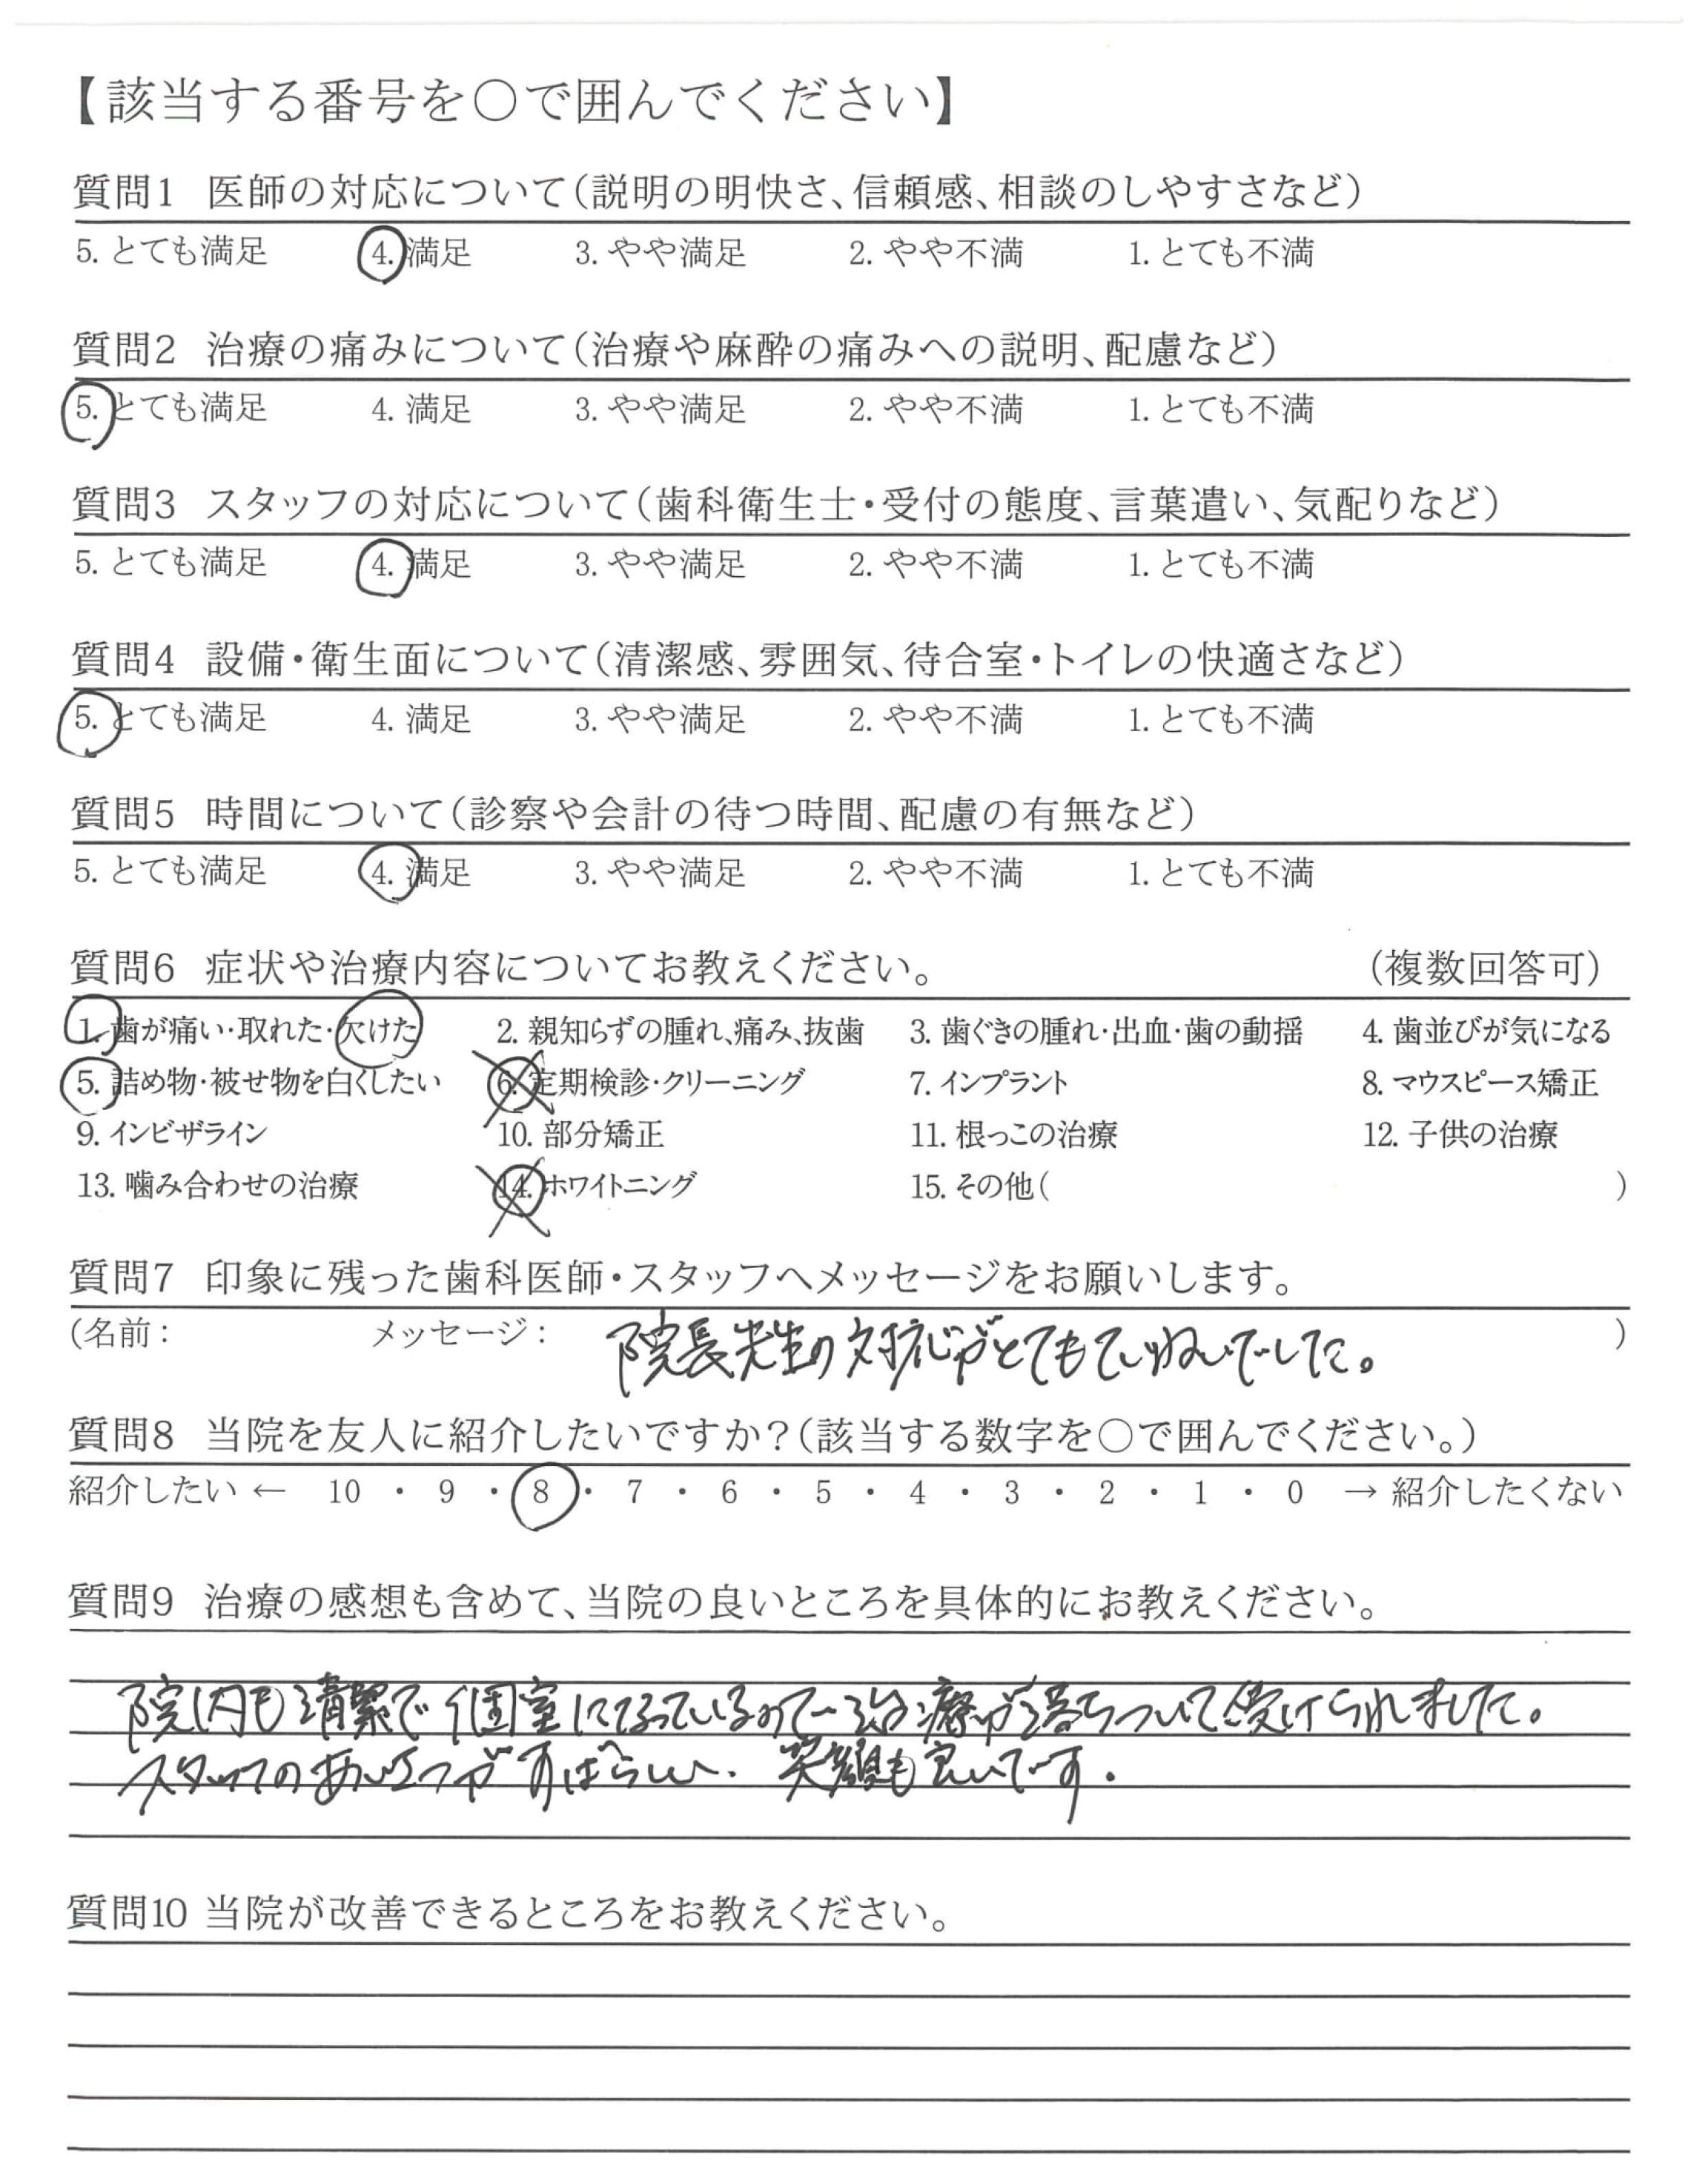 【該当する番号を〇で囲んでください】
質問1 医師の対応について(説明の明快さ、信頼感、相談のしやすさなど)
5. とても満足 4. 満足 3. やや満足 2. やや不満 1. とても不満
質問2 治療の痛みについて(治療や麻酔の痛みへの説明、配慮など)
5. とても満足 4. 満足 3. やや満足 2. やや不満 1. とても不満
質問3 スタッフの対応について(歯科衛生士・受付の態度、言葉遣い、気配りなど)
5. とても満足 4. 満足 3. やや満足 2. やや不満 1. とても不満
質問4 設備・衛生面について(清潔感、雰囲気、待合室・トイレの快適さなど)
5. とても満足 4. 満足 3. やや満足 2. やや不満 1. とても不満
質問5 時間について(診察や会計の待つ時間、配慮の有無など)
5. とても満足 4. 満足 3. やや満足 2. やや不満 1. とても不満
質問6 症状や治療内容についてお教えください。 (複数回答可)
1. 歯が痛い・取れた・欠けた 2. 親知らずの腫れ、痛み、抜歯 3. 歯ぐきの腫れ・出血・歯の動揺 4. 歯並びが気になる
5. 詰め物・被せ物を白くしたい 6. 定期検診・クリーニング 7. インプラント 8. マウスピース矯正
9. インビザライン 10. 部分矯正 11. 根っこの治療 12. 子供の治療
13. 噛み合わせの治療 14. ホワイトニング 15. その他( )
質問7 印象に残った歯科医師・スタッフへメッセージをお願いします。
(名前: メッセージ: 院長先生の対応がとてもていねいでした。 )
質問8 当院を友人に紹介したいですか?(該当する数字を〇で囲んでください。)
紹介したい ← 10 ・ 9 ・ 8 ・ 7 ・ 6 ・ 5 ・ 4 ・ 3 ・ 2 ・ 1 ・ 0 → 紹介したくない
質問9 治療の感想も含めて、当院の良いところを具体的にお教えください。
院内も清潔で個室になっているので治療が落ちついて受けられました。
スタッフのあいさつがすばらしい. 笑顔も良いです.
質問10 当院が改善できるところをお教えください。